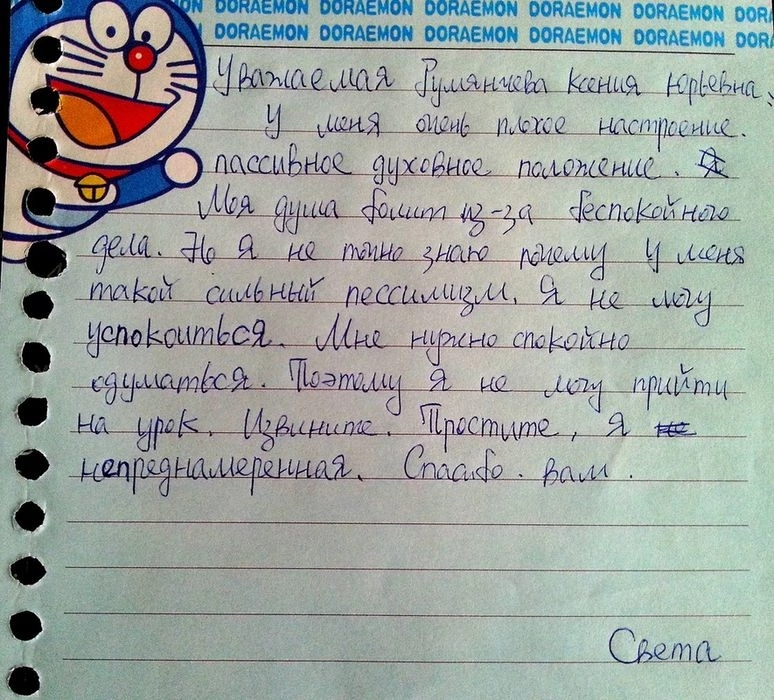 ON DORAEMON DORAEMON DORAEMON DORAEMON DORAEMON DOR
DORAEMON DORAEMON DORAEMON DORAEMON DORAEMON DORA
Уважаемая Румянчева Ксения Юрьевна,
У меня очень плохое настроение.
пассивное духовное положение. Я
Моя душа болит из-за беспокойного
дела. Но я не точно знаю почему у меня
такой сильный пессимизм. Я не могу
успокоиться. Мне нужно спокойно
одуматься. Поэтому я не могу прийти
на урок. Извините. Простите, я не
непреднамеренная. Спасибо. вам.
Света